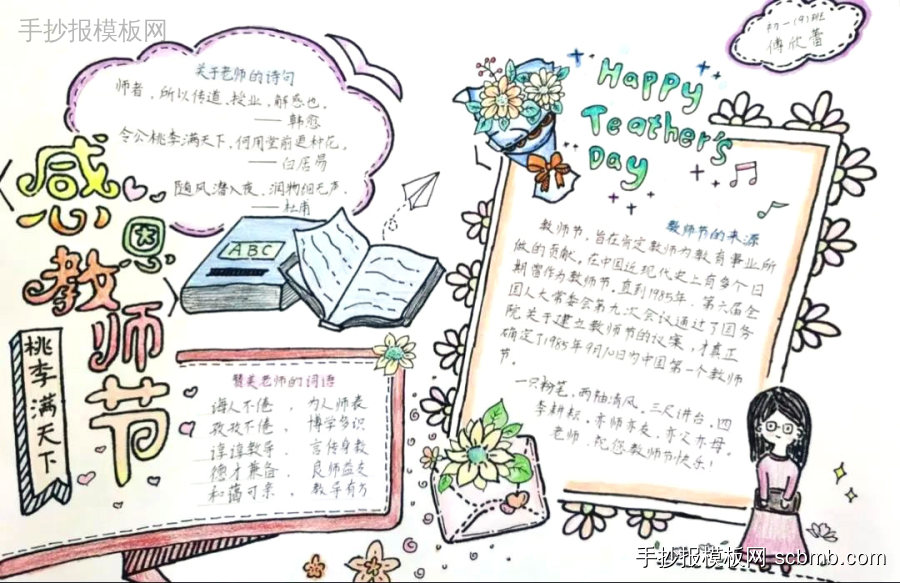 手抄报模板网
初一(9)班
傅欣蕾
关于老师的诗句
师者，所以传道，授业，解惑也。
——韩愈
令公桃李满天下，何用堂前更种花。
——白居易
随风潜入夜，润物细无声。
——杜甫
感恩教师节
桃李满天下
ABC
Happy
Teather's
Day
教师节的来源
教师节，旨在肯定教师为教育事业所
做的贡献。在中国近现代史上有多个日
期曾作为教师节，直到1985年，第六届全
国人大常委会第九次会议通过了国务
院关于建立教师节的议案，才真正
确定了1985年9月10日为中国第一个教师
节。
一只粉笔，两袖清风，三尺讲台，四
季耕耘，亦师亦友，亦父亦母。
老师，祝您教师节快乐！
赞美老师的词语
诲人不倦，为人师表
孜孜不倦，博学多识
谆谆教导，言传身教
德才兼备，良师益友
和蔼可亲，教导有方
手抄报模板网 scbmb.com